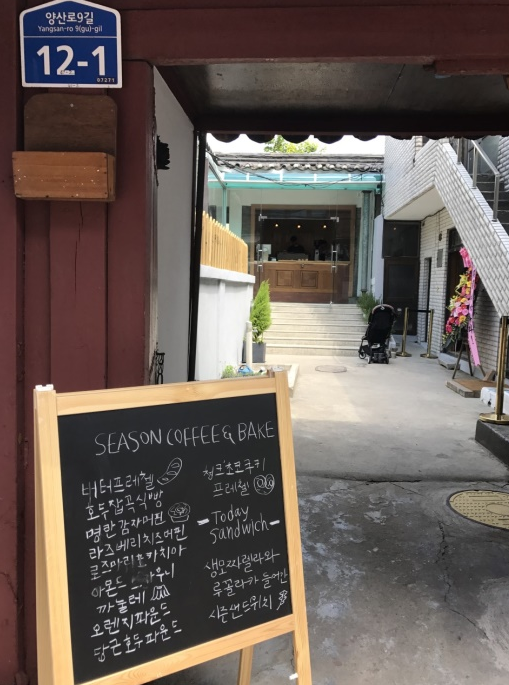 양산로9길
Yangsan-ro 9(gu)-gil
12-1
07271
SEASON COFFEE & BAKE
버터프레첼
호두잡곡식빵
명란감자머핀
라즈베리치즈머핀
로즈마리포카치아
아몬드
까눌레
오렌지파운드
당근호두파운드
청크초코쿠키
프레첼
-Today
sandwich-
생모짜렐라와
루꼴라가 들어간
시즌샌드위치